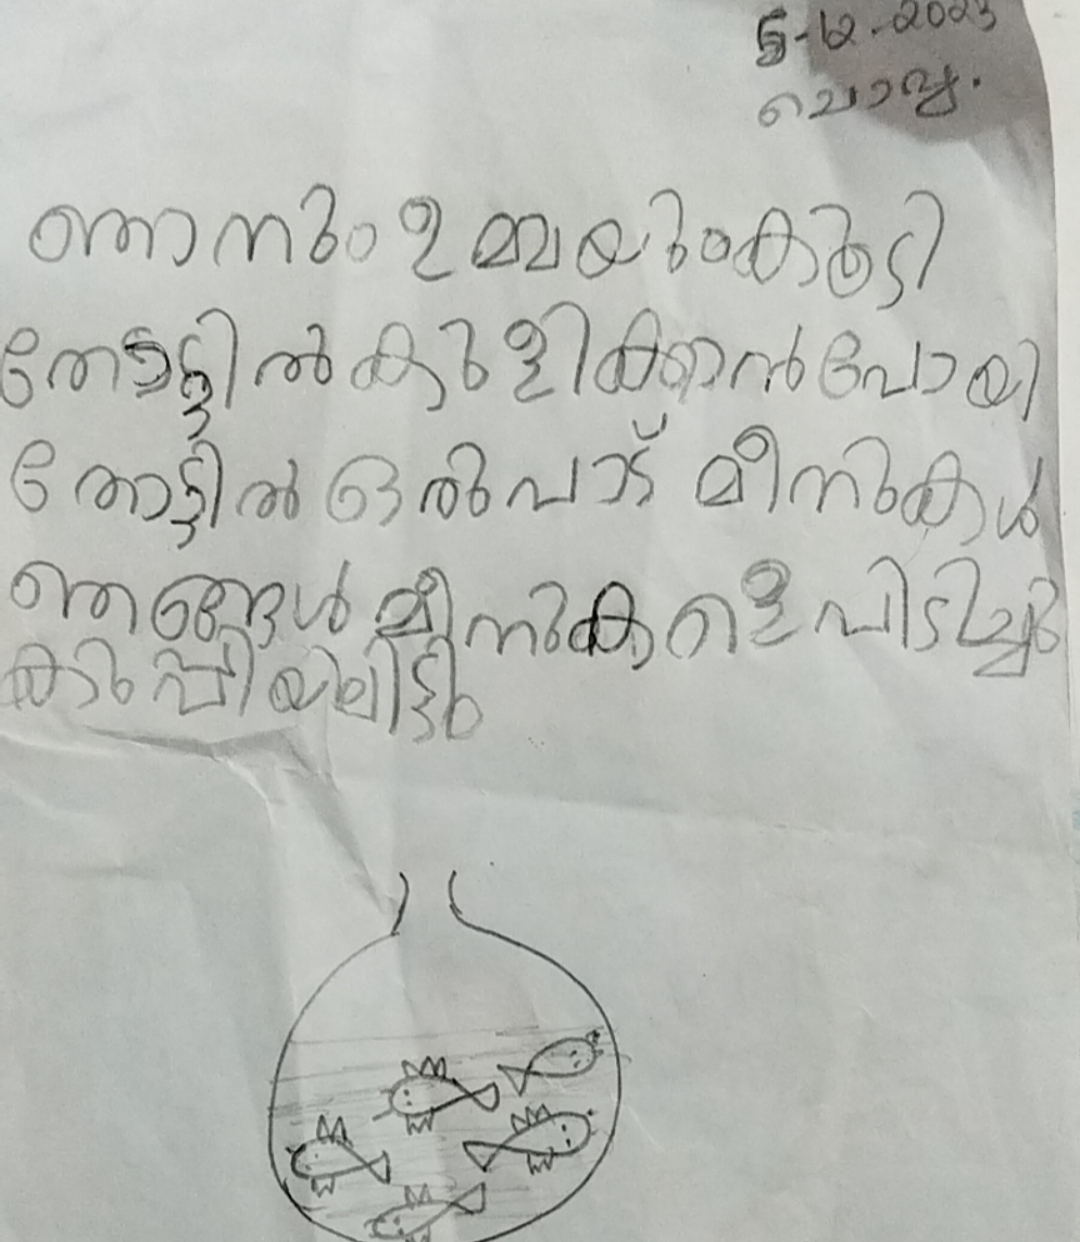 5-12-2023
ചൊവ്വ.
ഞാനും ഉമ്മയും കൂടി
തോട്ടിൽ കുളിക്കാൻ പോയി
തോട്ടിൽ ഒരുപാട് മീനുകൾ
ഞങ്ങൾ മീനുകളെ പിടിച്ചു
കുപ്പിയിലിട്ടു